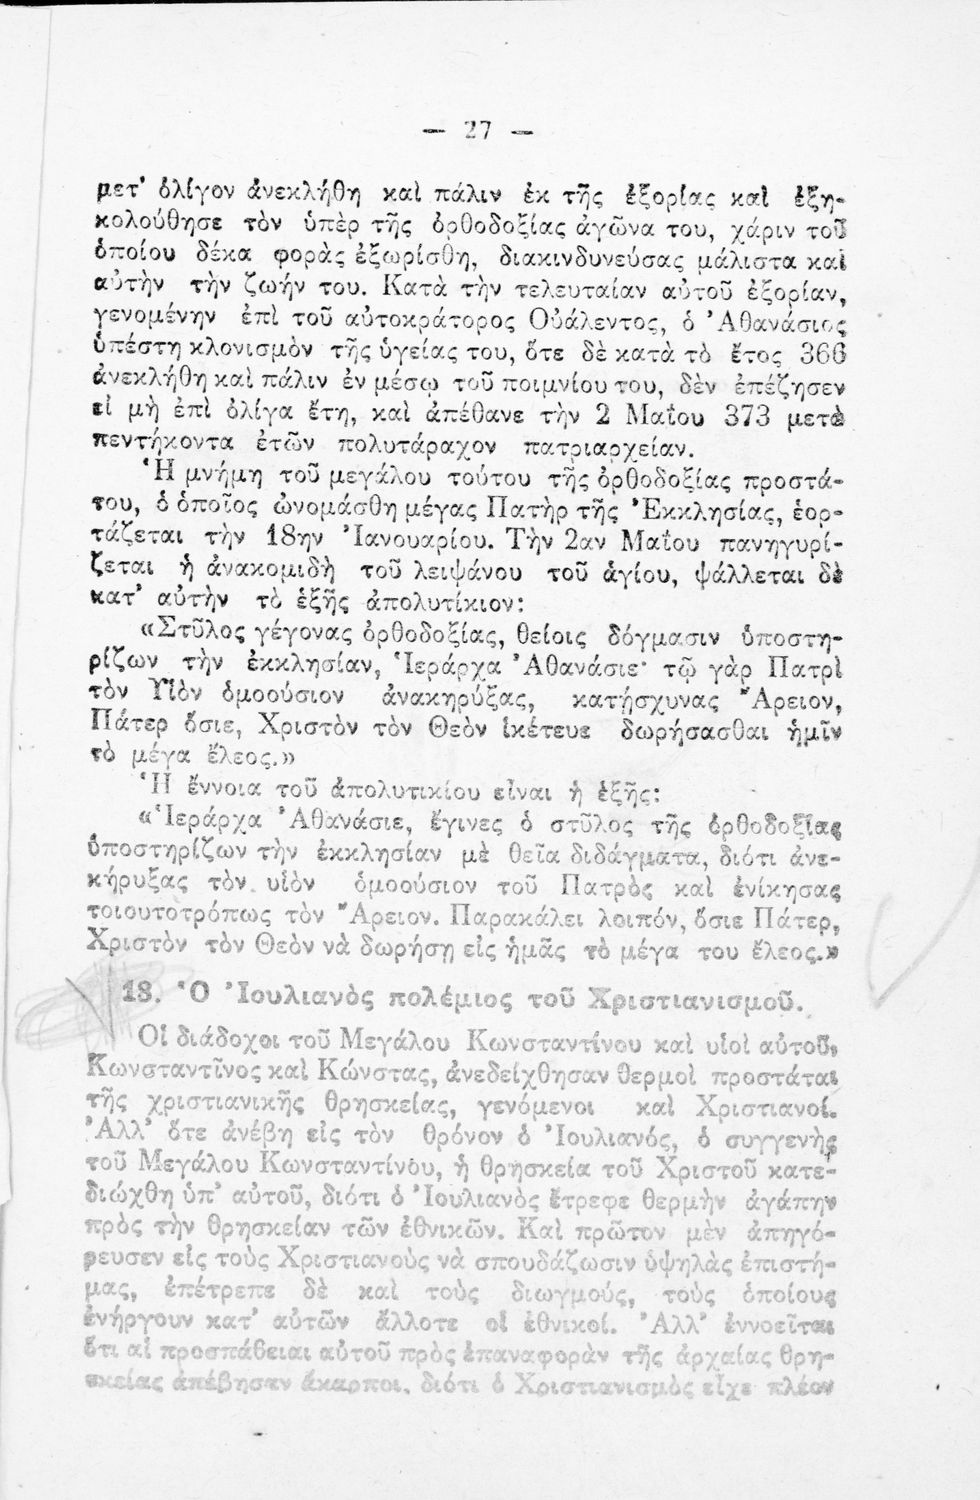 — 27 —
μετ' ὀλίγον ἀνεκλήθη καὶ πάλιν ἐκ τῆς ἐξορίας καὶ ἐξη-
κολούθησε τὸν ὑπὲρ τῆς ὀρθοδοξίας ἀγῶνα του, χάριν τοῦ
ὁποίου δέκα φορὰς ἐξωρίσθη, διακινδυνεύσας μάλιστα καὶ
αὐτὴν τὴν ζωήν του. Κατὰ τὴν τελευταίαν αὐτοῦ ἐξορίαν,
γενομένην ἐπὶ τοῦ αὐτοκράτορος Οὐάλεντος, ὁ Ἀθανάσιος
ὑπέστη κλονισμὸν τῆς ὑγείας του, ὅτε δὲ κατὰ τὸ ἔτος 366
ἀνεκλήθη καὶ πάλιν ἐν μέσῳ τοῦ ποιμνίου του, δὲν ἐπέζησεν
εἰ μὴ ἐπὶ ὀλίγα ἔτη, καὶ ἀπέθανε τὴν 2 Μαΐου 373 μετὰ
πεντήκοντα ἐτῶν πολυτάραχον πατριαρχείαν.
Ἡ μνήμη τοῦ μεγάλου τούτου τῆς ὀρθοδοξίας προστά-
του, ὁ ὁποῖος ὠνομάσθη μέγας Πατὴρ τῆς Ἐκκλησίας, ἑορ-
τάζεται τὴν 18ην Ἰανουαρίου. Τὴν 2αν Μαΐου πανηγυρί-
ζεται ἡ ἀνακομιδὴ τοῦ λειψάνου τοῦ ἁγίου, ψάλλεται δὲ
κατ' αὐτὴν τὸ ἑξῆς ἀπολυτίκιον:
«Στῦλος γέγονας ὀρθοδοξίας, θείοις δόγμασιν ὑποστη-
ρίζων τὴν ἐκκλησίαν, Ἱεράρχα Ἀθανάσιε· τῷ γὰρ Πατρὶ
τὸν Υἱὸν ὁμοούσιον ἀνακηρύξας, κατῄσχυνας Ἄρειον,
Πάτερ ὅσιε, Χριστὸν τὸν Θεὸν ἱκέτευε δωρήσασθαι ἡμῖν
τὸ μέγα ἔλεος.»
Ἡ ἔννοια τοῦ ἀπολυτικίου εἶναι ἡ ἑξῆς:
«Ἱεράρχα Ἀθανάσιε, ἔγινες ὁ στῦλος τῆς ὀρθοδοξίας
ὑποστηρίζων τὴν ἐκκλησίαν μὲ θεῖα διδάγματα, διότι ἀνε-
κήρυξας τὸν υἱὸν ὁμοούσιον τοῦ Πατρὸς καὶ ἐνίκησας
τοιουτοτρόπως τὸν Ἄρειον. Παρακάλει λοιπόν, ὅσιε Πάτερ,
Χριστὸν τὸν Θεὸν νὰ δωρήσῃ εἰς ἡμᾶς τὸ μέγα του ἔλεος.»
18. Ὁ Ἰουλιανὸς πολέμιος τοῦ Χριστιανισμοῦ.
Οἱ διάδοχοι τοῦ Μεγάλου Κωνσταντίνου καὶ υἱοὶ αὐτοῦ,
Κωνσταντῖνος καὶ Κώνστας, ἀνεδείχθησαν θερμοὶ προστάται
τῆς χριστιανικῆς θρησκείας, γενόμενοι καὶ Χριστιανοί.
Ἀλλ' ὅτε ἀνέβη εἰς τὸν θρόνον ὁ Ἰουλιανός, ὁ συγγενὴς
τοῦ Μεγάλου Κωνσταντίνου, ἡ θρησκεία τοῦ Χριστοῦ κατε-
διώχθη ὑπ' αὐτοῦ, διότι ὁ Ἰουλιανὸς ἔτρεφε θερμὴν ἀγάπην
πρὸς τὴν θρησκείαν τῶν ἐθνικῶν. Καὶ πρῶτον μὲν ἀπηγό-
ρευσεν εἰς τοὺς Χριστιανοὺς νὰ σπουδάζωσιν ὑψηλὰς ἐπιστή-
μας, ἐπέτρεπε δὲ καὶ τοὺς διωγμούς, τοὺς ὁποίους
ἐνήργουν κατ' αὐτῶν ἄλλοτε οἱ ἐθνικοί. Ἀλλ' ἐννοεῖται
ὅτι αἱ προσπάθειαι αὐτοῦ πρὸς ἐπαναφορὰν τῆς ἀρχαίας θρη-
σκείας ἀπέβησαν ἄκαρποι, διότι ὁ Χριστιανισμὸς εἶχε πλέον